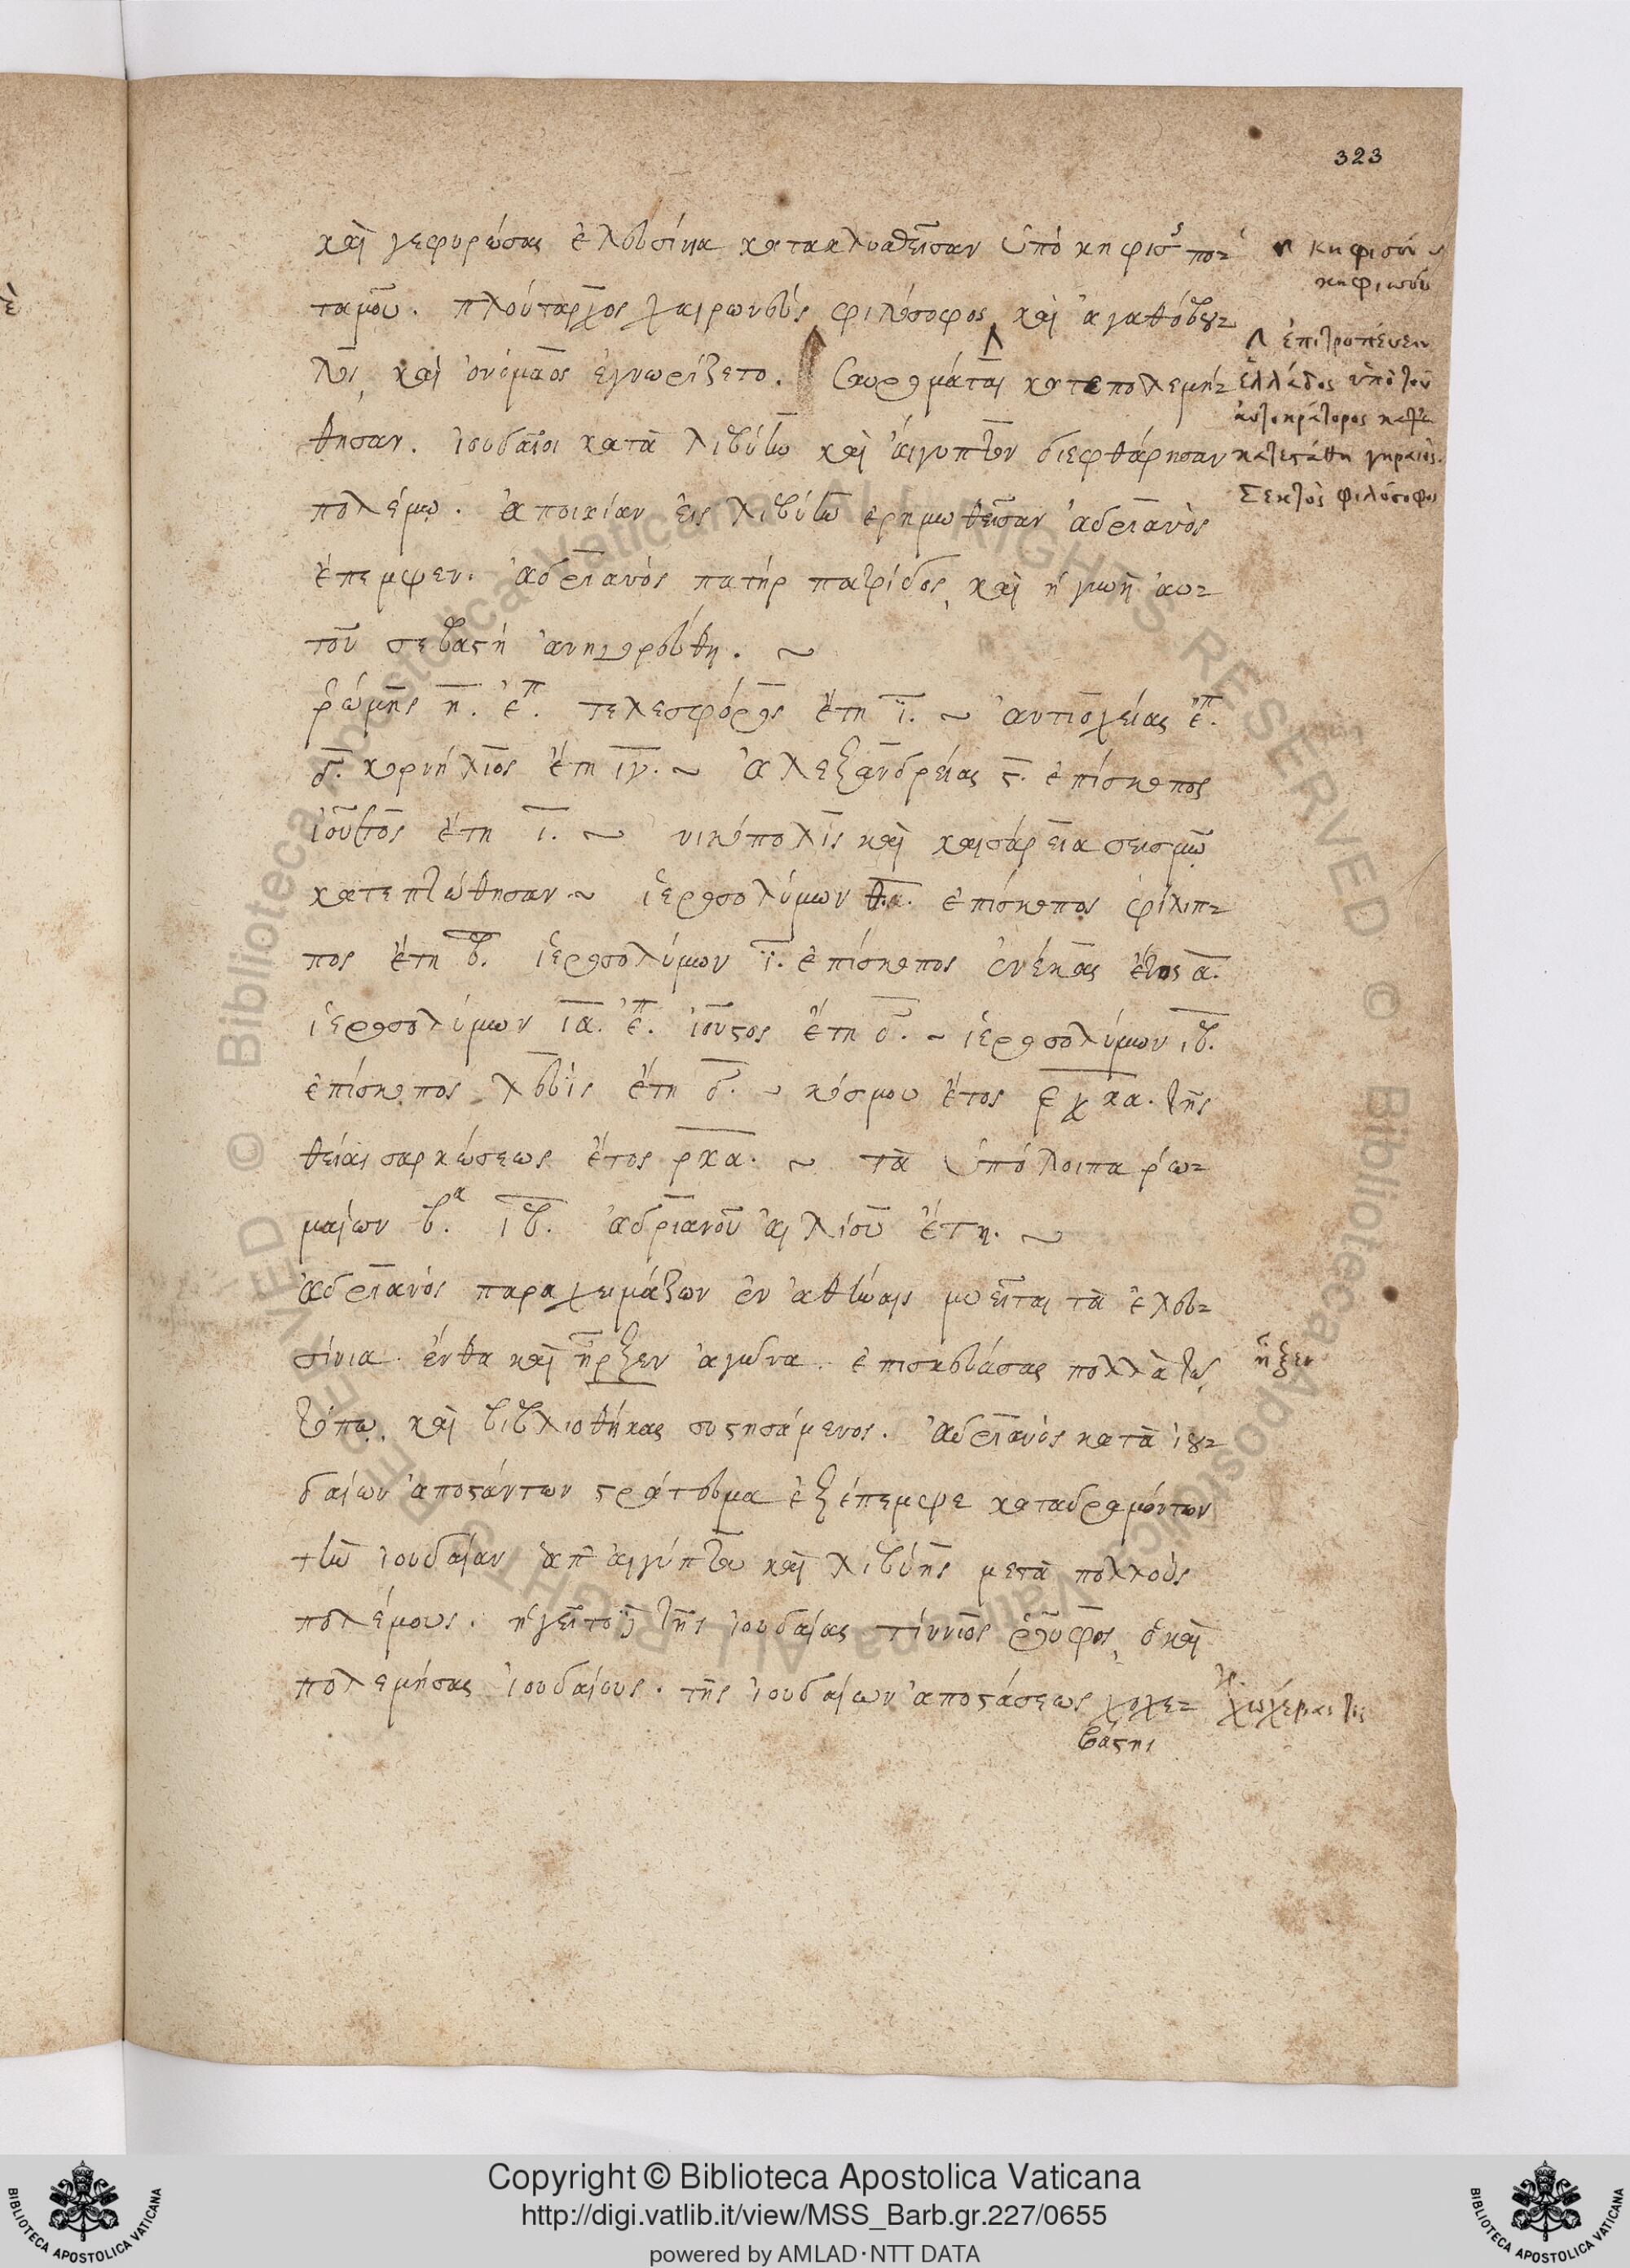 323
καὶ γεφυρώσας ἐλευσίνια κατακλυσθεῖσαν ὑπὸ κηφισοῦ πο-
ταμοῦ. πλούταρχος χαιρωνεὺς φιλόσοφος καὶ ἀγαθόβου-
λος, καὶ ὀνόμαος ἐγνωρίζετο. Σαυρομάται κατεπολεμή-
θησαν. ἰουδαῖοι κατὰ λιβύην καὶ αἴγυπτον διεφθάρησαν
πολέμῳ. ἀποικίαν εἰς λιβύην ἐρημωθεῖσαν ἀδριανὸς
ἔπεμψεν. ἀδριανὸς πατὴρ πατρίδος, καὶ ἡ γυνὴ αὐ-
τοῦ σεβαστὴ ἀνηγορεύθη. ~
ῥώμης η. ἐπ. τελεσφόρος ἔτη ι. ~ ἀντιοχείας ἐπ.
δ. κορνήλιος ἔτη ιγ. ~ ἀλεξανδρείας ς. ἐπίσκοπος
ἰοῦστος ἔτη ι. ~ νικόπολις καὶ καισάρεια σεισμῷ
κατεπτώθησαν ~ ἱεροσολύμων ἐπίσκοπος φίλιπ-
πος ἔτη β. ἱεροσολύμων ι. ἐπίσκοπος σνέκας ἔτος α.
ἱεροσολύμων ια. ἐπ. ἰοῦστος ἔτη δ. ~ ἱεροσολύμων ιβ.
ἐπίσκοπος λευῒς ἔτη δ. ~ κόσμου ἔτος εχκα. τῆς
θείας σαρκώσεως ἔτος ρκα. ~ τὰ ὑπόλοιπα ῥω-
μαίων β. ιβ. ἀδριανοῦ αἰλίου ἔτη. ~
ἀδριανὸς παραχειμάζων ἐν ἀθήναις μυεῖται τὰ ἐλευ-
σίνια. ἔνθα καὶ ἦρξεν ἀγῶνα. ἐπισκευάσας πολλὰ τῷ
τόπῳ, καὶ βιβλιοθήκας συστησάμενος. ἀδριανὸς κατὰ ἰου-
δαίων ἀποστάντων στράτευμα ἐξέπεμψε καταδραμόντων
τὴν ἰουδαίαν ἀπ' αἰγύπτου καὶ λιβύης μετὰ πολλοὺς
πολέμους. ἡγεῖτο δὲ τῆς ἰουδαίας τίννιος ῥοῦφος, ὁ καὶ
πολεμήσας ἰουδαίους. τῆς ἰουδαίων ἀποστάσεως χοχε-
βάστης
κηφισόν
κηφισσόν
Λ ἐπιτροπεύειν
ἑλλάδος ὑπὸ τοῦ
αὐτοκράτορος
κατεστάθη γηραιός.
Σεκτὸς φιλόσοφος
ἦξεν